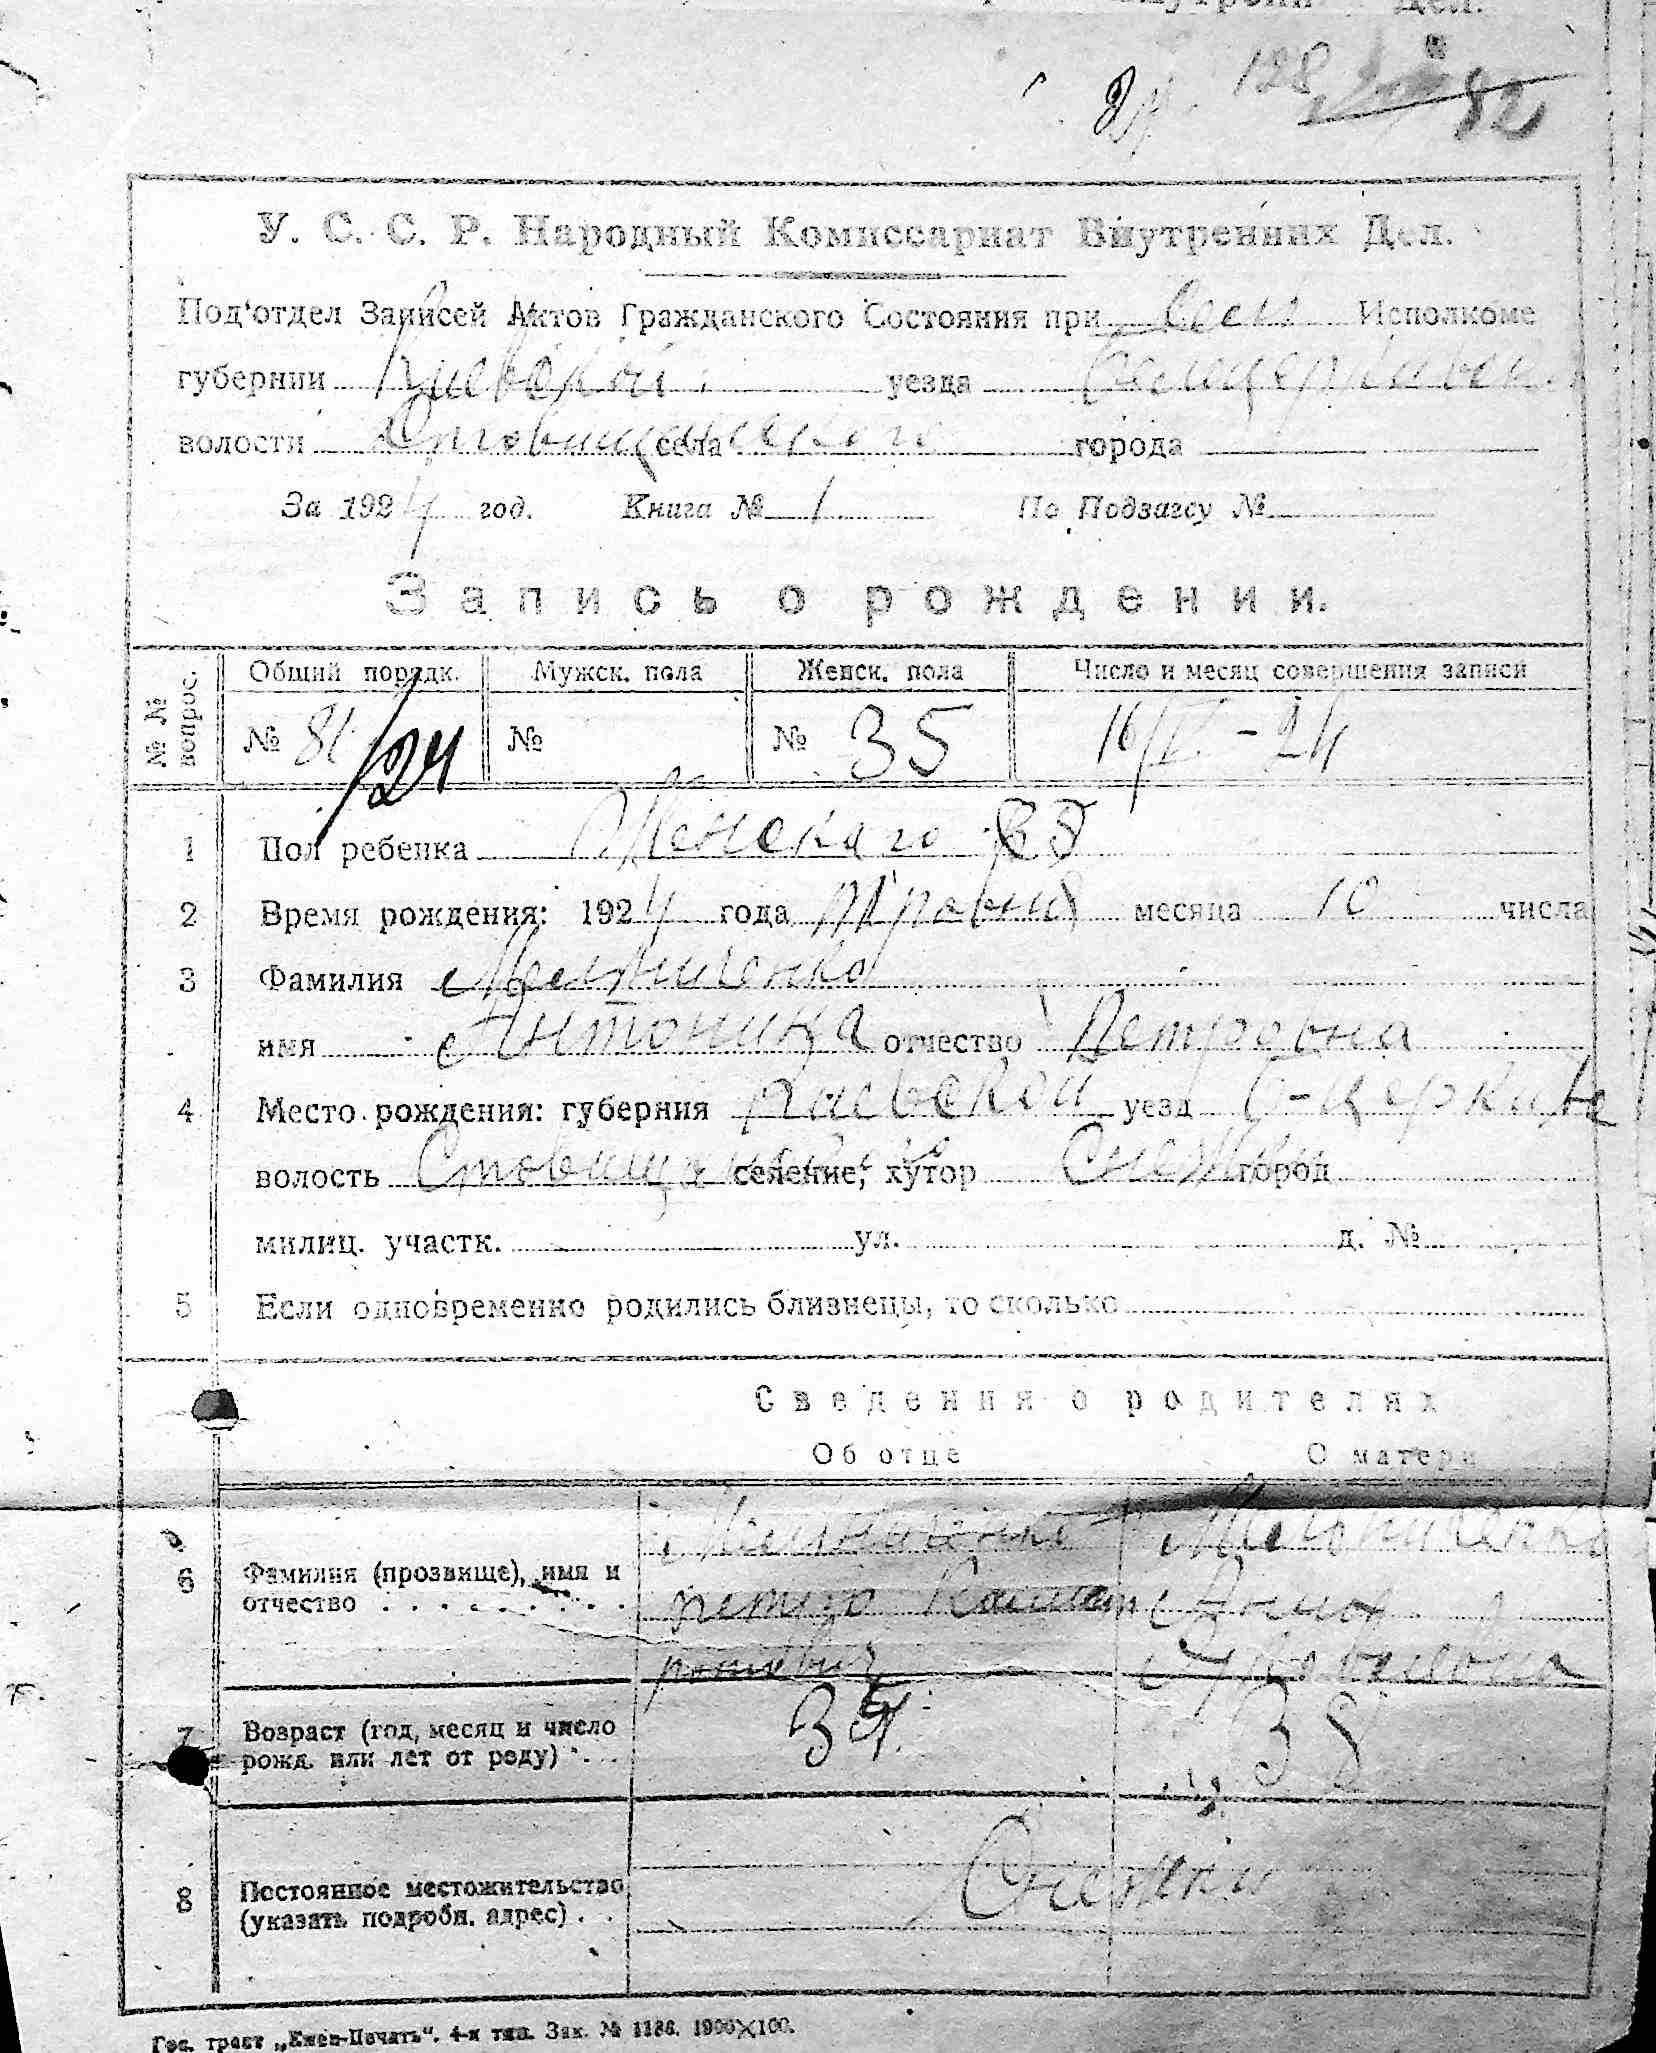 128 82
У. С. С. Р. Народный Комиссариат Внутренних Дел.
Под‘отдел Записей Актов Гражданского Состояния при Исполкоме
губернии Киевской уезда
волости села города
За 1924 год. Книга № 1 По Подзагсу №
Запись о рождении.
№ № вопрос. Общий порядк. Мужск. пола Женск. пола Число и месяц совершения записи
№ 81/24 № № 35 16/V - 24
1 Пол ребенка Женскаго
2 Время рождения: 1924 года Травня месяца 10 числа
3 Фамилия Мельниченко
имя Антонина отчество Петровна
4 Место рождения: губерния Киевской уезд Б-Церкив
волость селение, хутор Снежки город
милиц. участк. ул. д. №
5 Если одновременно родились близнецы, то сколько
Сведения о родителях
Об отце О матери
6 Фамилия (прозвище), имя и отчество Мельниченко Петро Мельниченко Анна
7 Возраст (год, месяц и число рожд. или лет от роду) 38
8 Постоянное местожительство (указать подробн. адрес) Снежки
Гос. трест „Киев-Печать“. 4-я тип. Зак. № 1186. 1900×100.